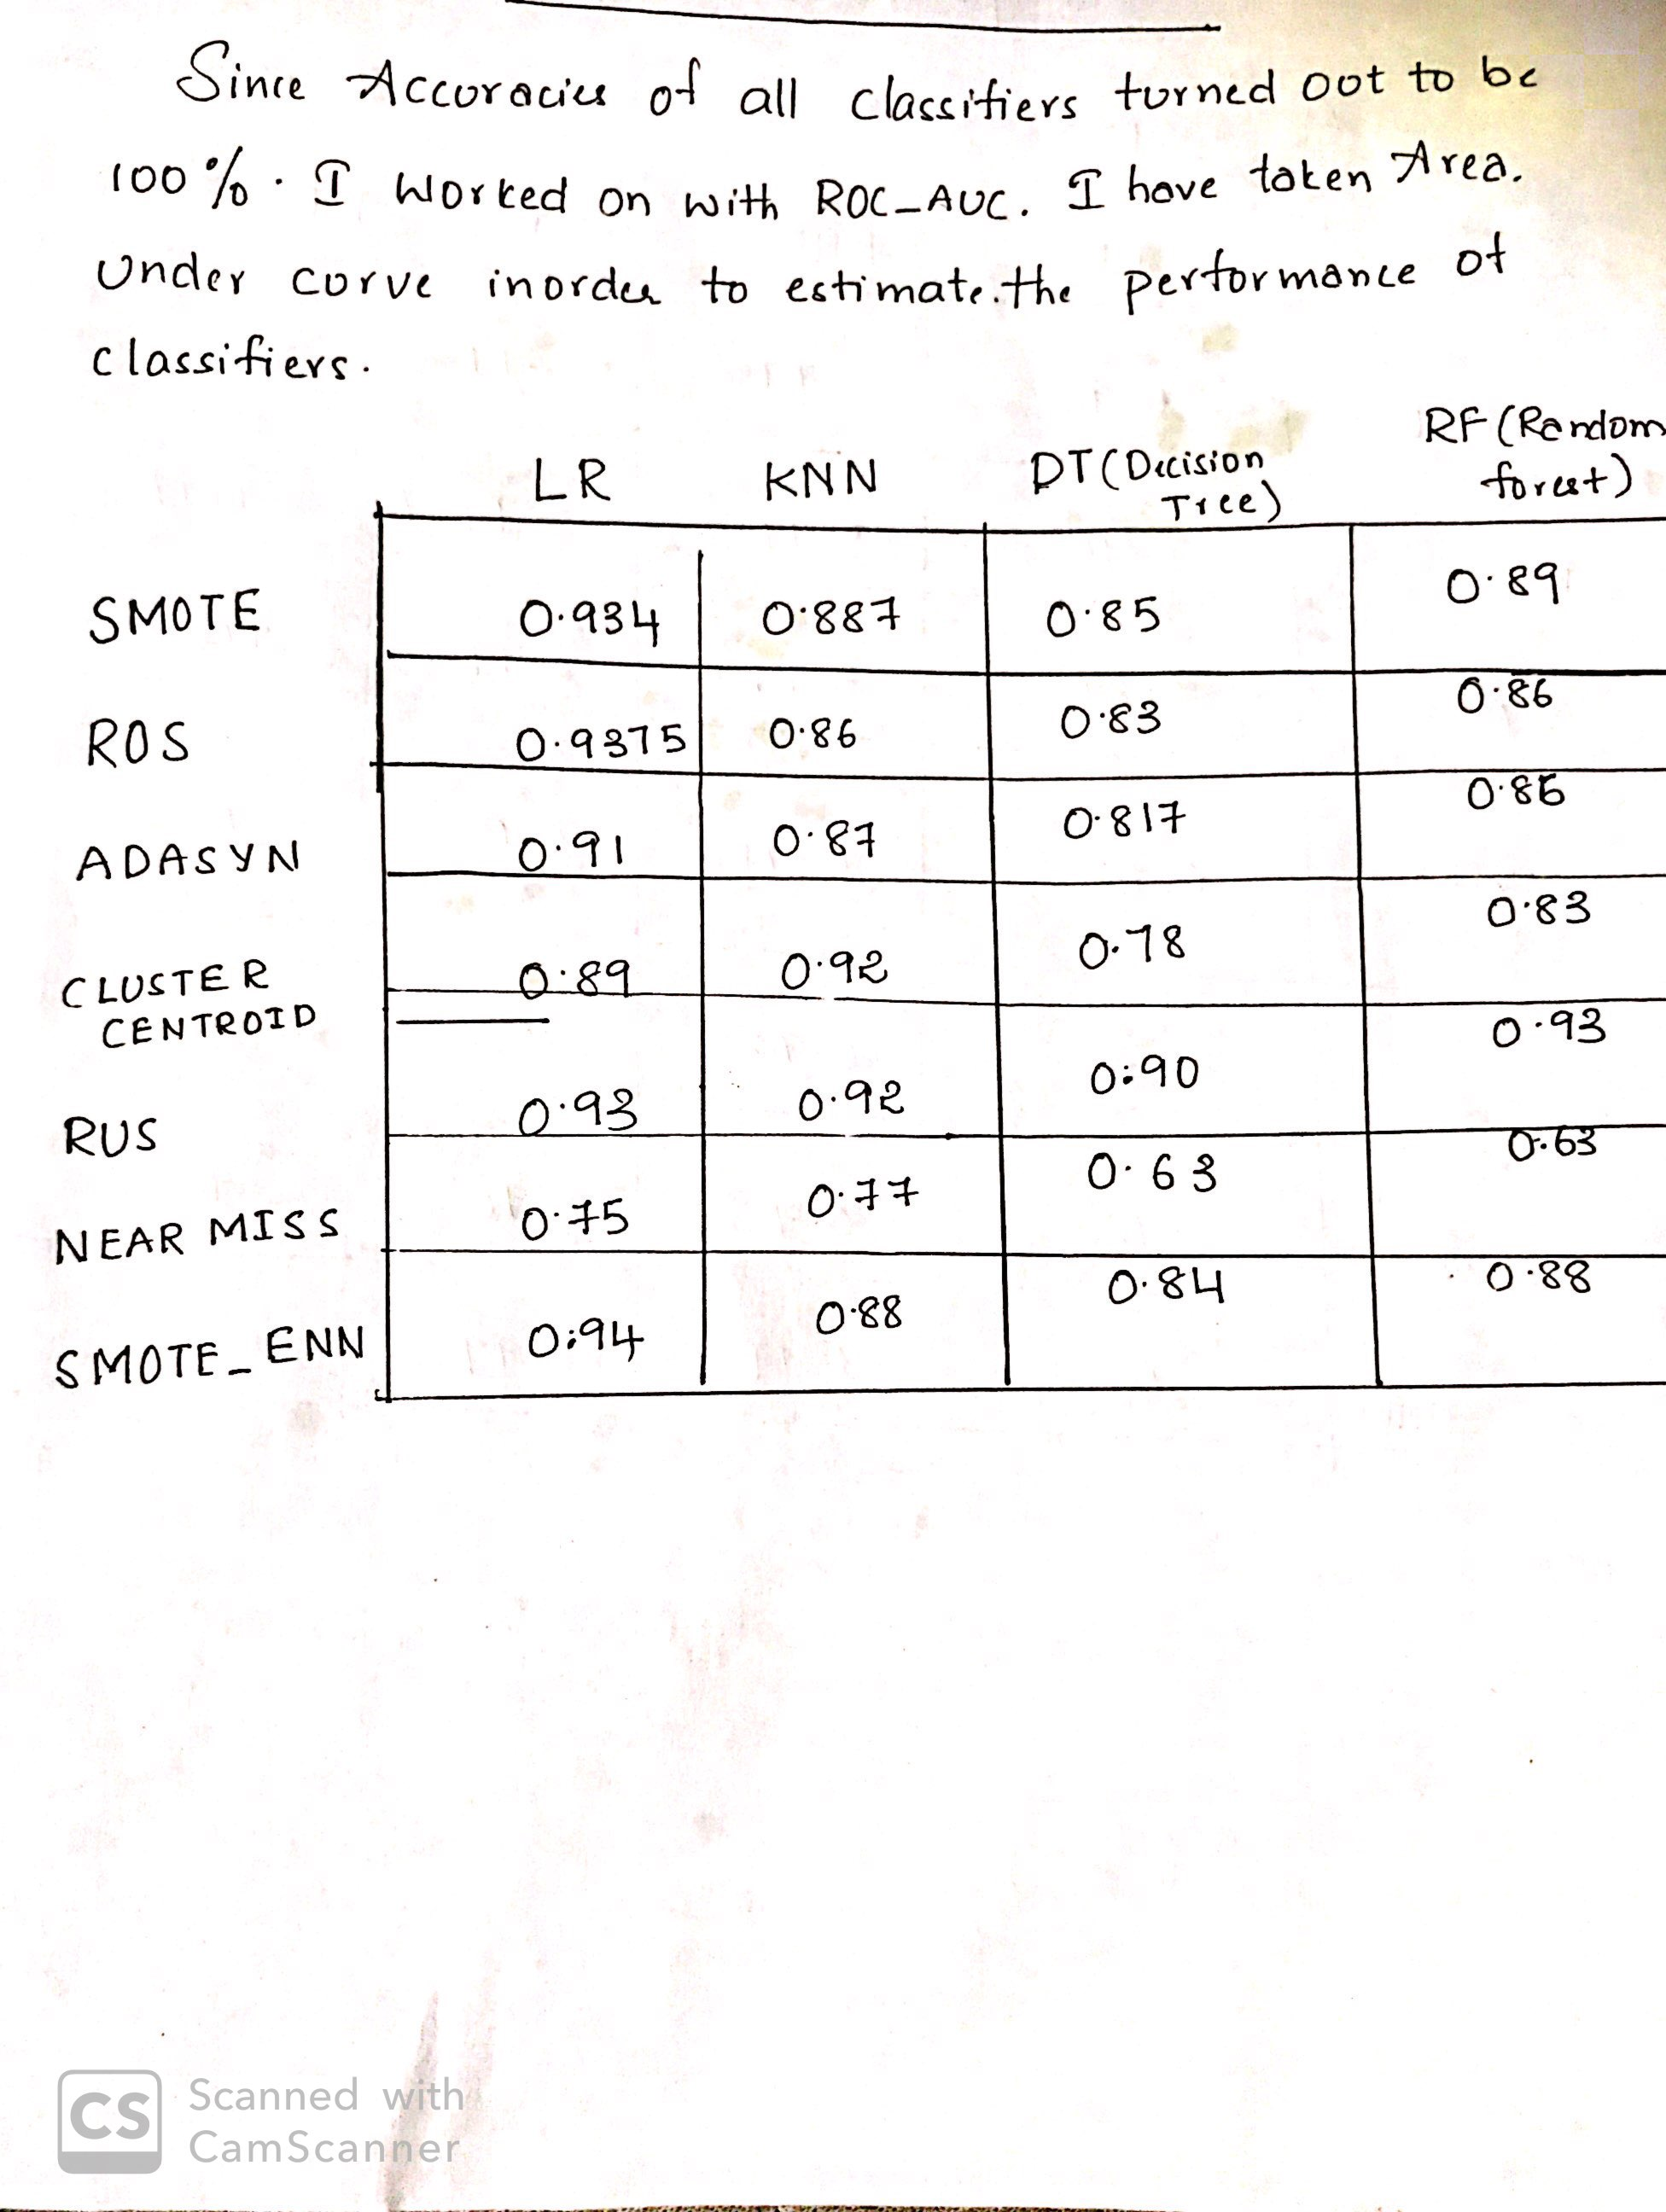 Since Accuracies of all classifiers turned out to be
100%. I worked on with ROC_AUC. I have taken Area.
Under curve inorder to estimate.the performance of
classifiers.
LR KNN DT(Decision Tree) RF(Random forest)
SMOTE 0.934 0.887 0.85 0.89
ROS 0.9375 0.86 0.83 0.86
ADASYN 0.91 0.87 0.817
CLUSTER CENTROID 0.89 0.92 0.78 0.83
RUS 0.93 0.92 0.90 0.93
NEAR MISS 0.75 0.77 0.63 0.63
SMOTE_ENN 0.94 0.88 0.84 0.88
CS Scanned with
CamScanner